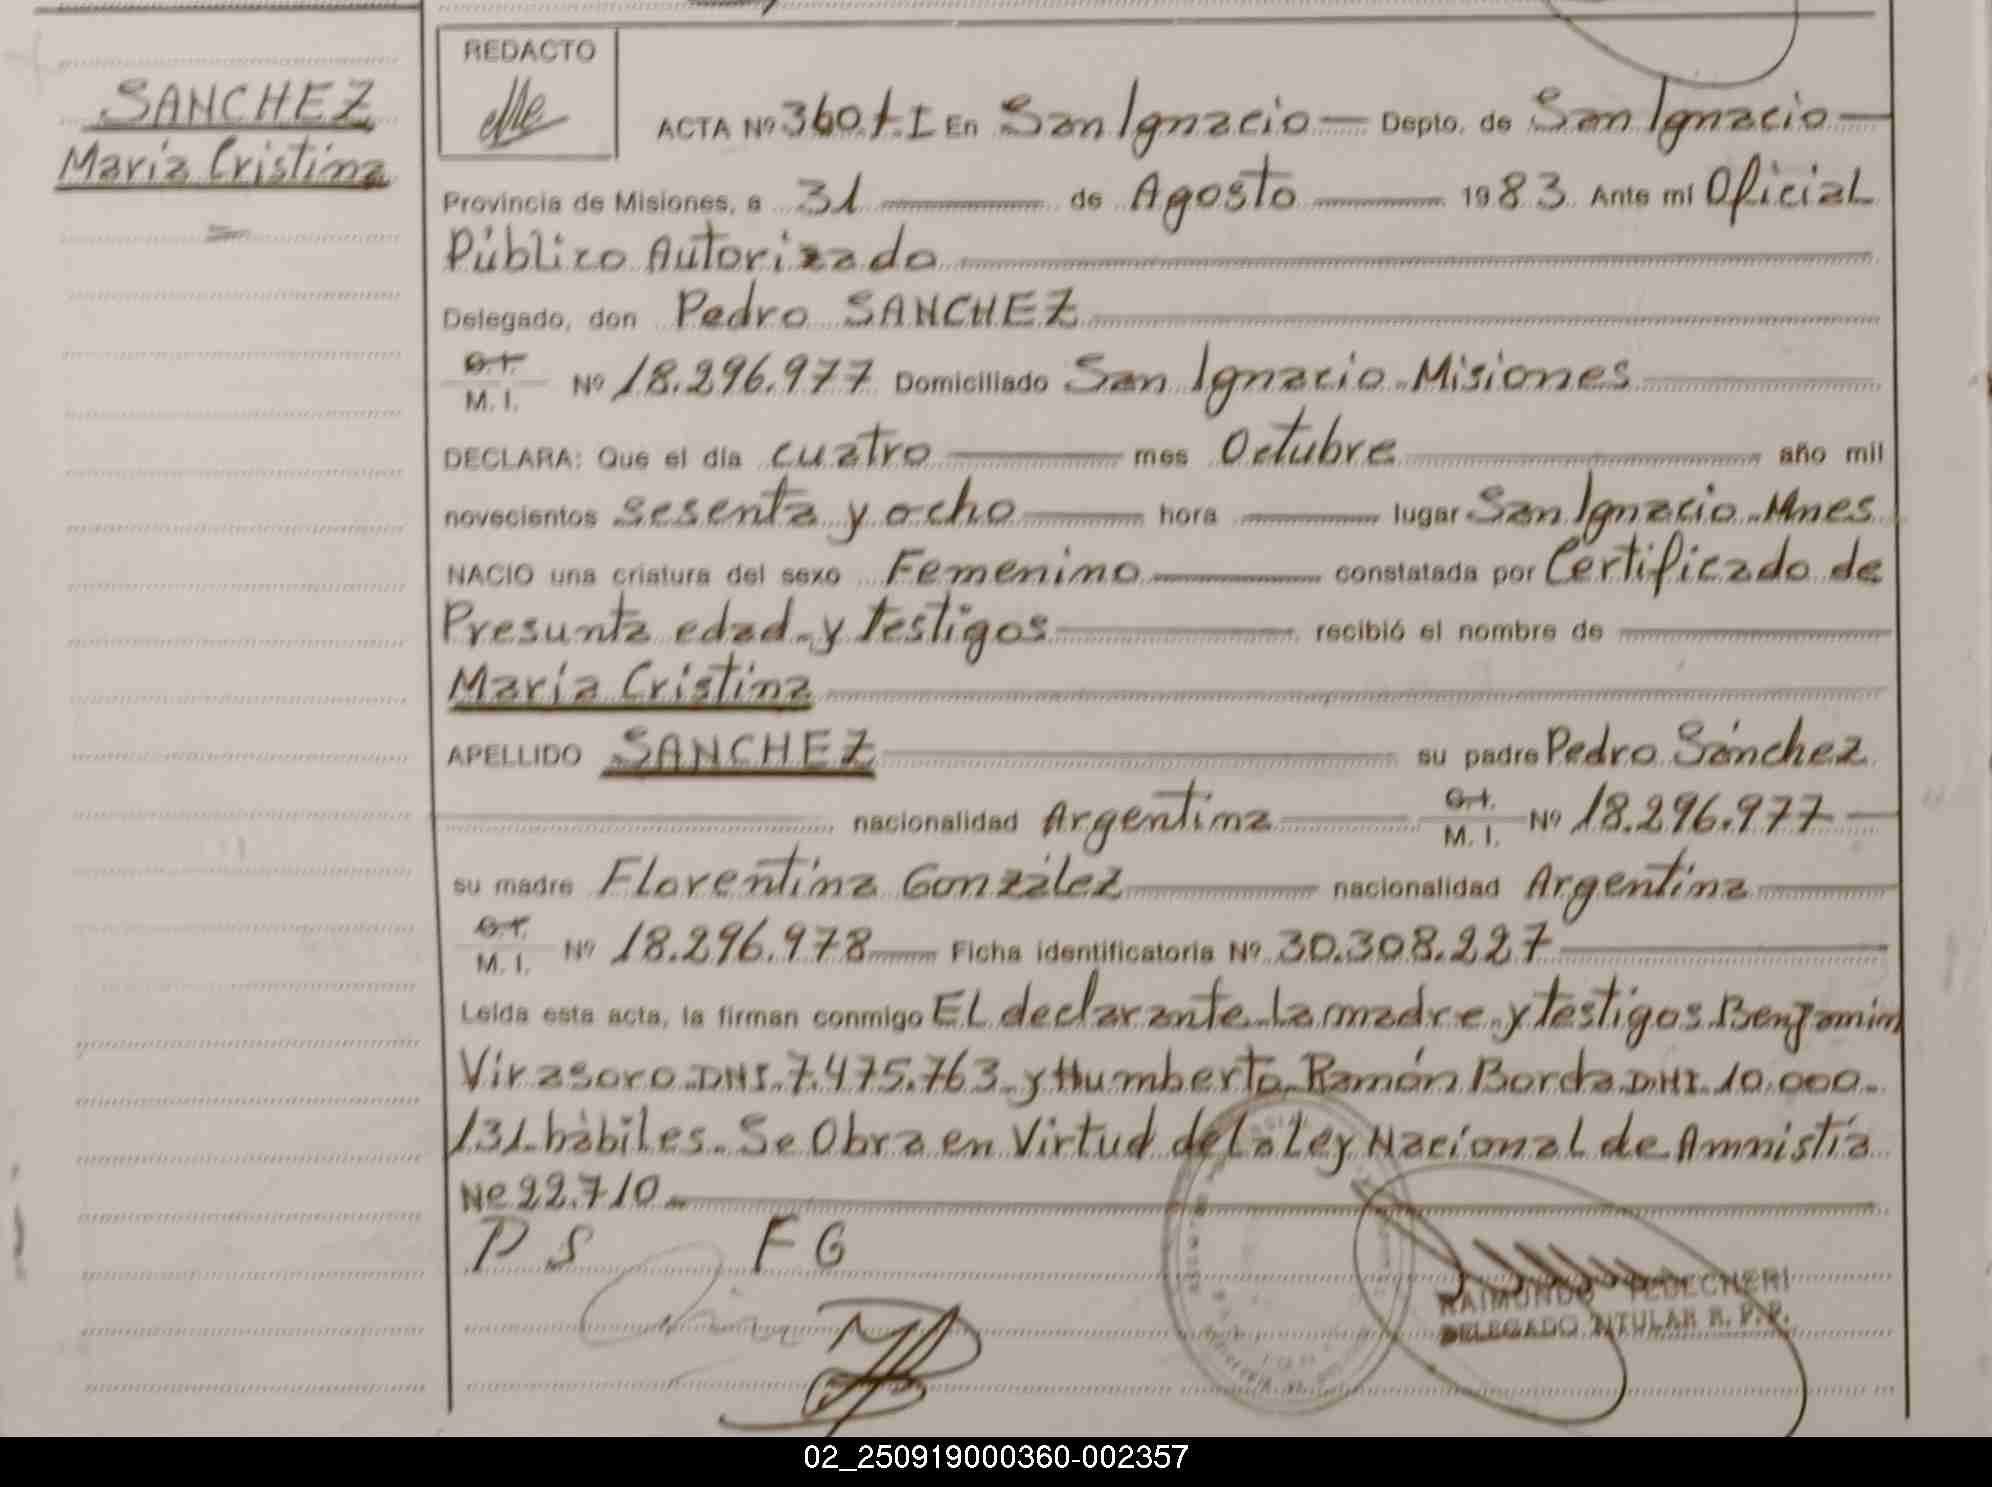 SANCHEZ
María Cristina
REDACTO
ACTA Nº 360.t.I En San Ignacio Depto. de San Ignacio
Provincia de Misiones, a 31 de Agosto 1983. Ante mi Oficial
Público Autorizado
Delegado, don Pedro SANCHEZ
C.I.
M. I. Nº 18.296.977 Domiciliado San Ignacio Misiones
DECLARA: Que el día cuatro mes Octubre año mil
novecientos sesenta y ocho hora lugar San Ignacio Mnes
NACIO una criatura del sexo Femenino constatada por Certificado de
Presunta edad y testigos recibió el nombre de
María Cristina
APELLIDO SANCHEZ su padre Pedro Sánchez
nacionalidad Argentina C.I. M. I. Nº 18.296.977
su madre Florentina González nacionalidad Argentina
C.I.
M. I. Nº 18.296.978 Ficha identificatoria Nº 30.308.227
Leída esta acta, la firman conmigo El declarante La madre y testigos Benjamin
Virasoro DNI. 7.475.763 y Humberto Ramón Borda DNI. 10.000.
131 hábiles. Se Obra en Virtud de La Ley Nacional de Amnistía
Nº 22.710
P S F G
RAIMUNDO
DELEGADO TITULAR R. P. P.
02_250919000360-002357